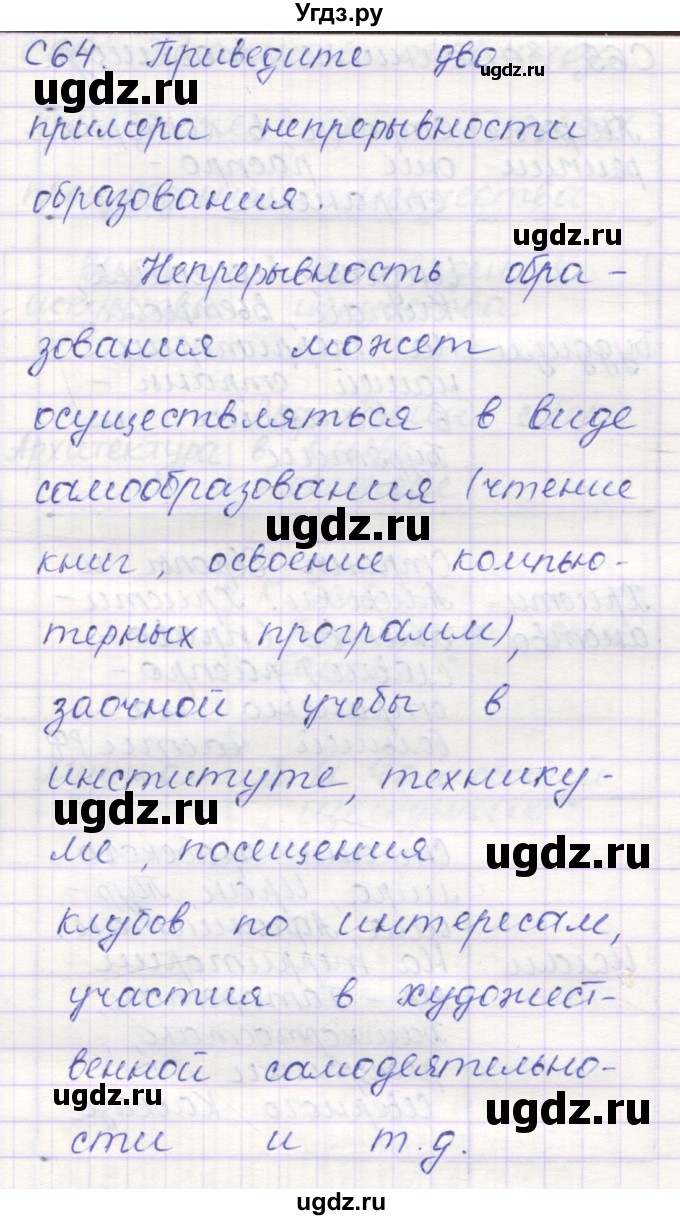 Угдз.ру
С64. Приведите два
ugdz.ru
ugdz.ru
примера непрерывности
образования.
ugdz.ru
Непрерывность обра-
зования может
осуществляться в виде
самообразования (чтение
ugdz.ru
книг, освоение компью-
терных программ),
ugdz.ru
заочной учебы в
институте, технику-
ugdz.ru
ме, посещения
ugdz.ru
клубов по интересам,
участия в художест-
венной самодеятельно-
ugdz.ru
ugdz.ru
сти и т.д.
ugdz.ru